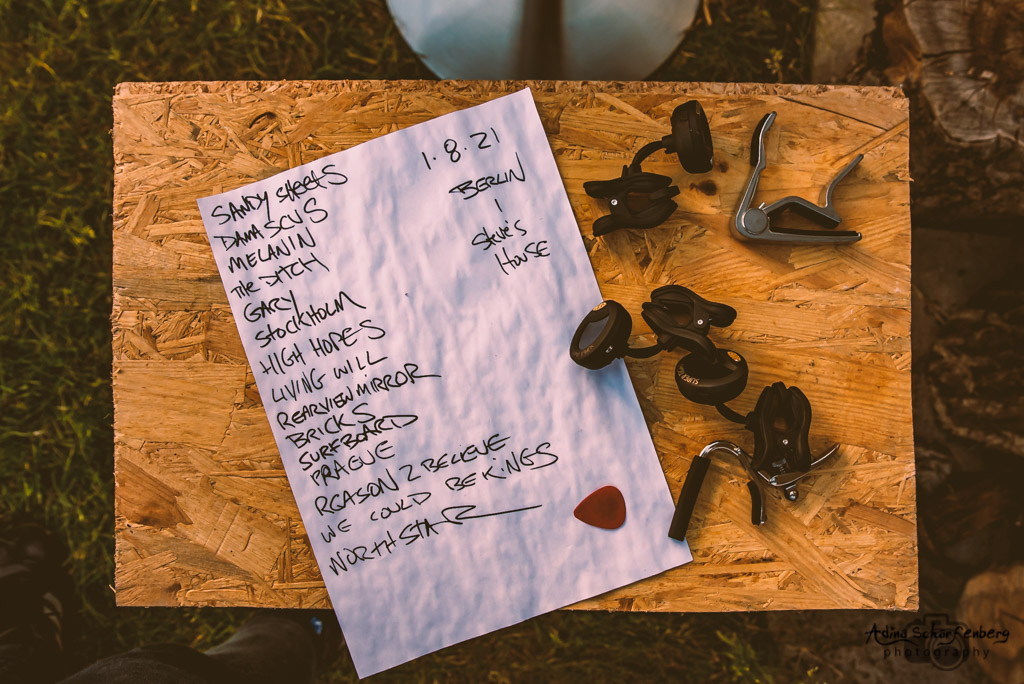 1.8.21
BERLIN
1
Steve's
House
SANDY SHEETS
DAMASCUS
MELANIN
THE DITCH
GARY
STOCKHOLM
HIGH HOPES
LIVING WILL
REARVIEW MIRROR
BRICKS
SURFBOARD
PRAGUE
REASON 2 BELIEVE
WE COULD BE KINGS
NORTH STAR
Adina Scharfenberg
photography